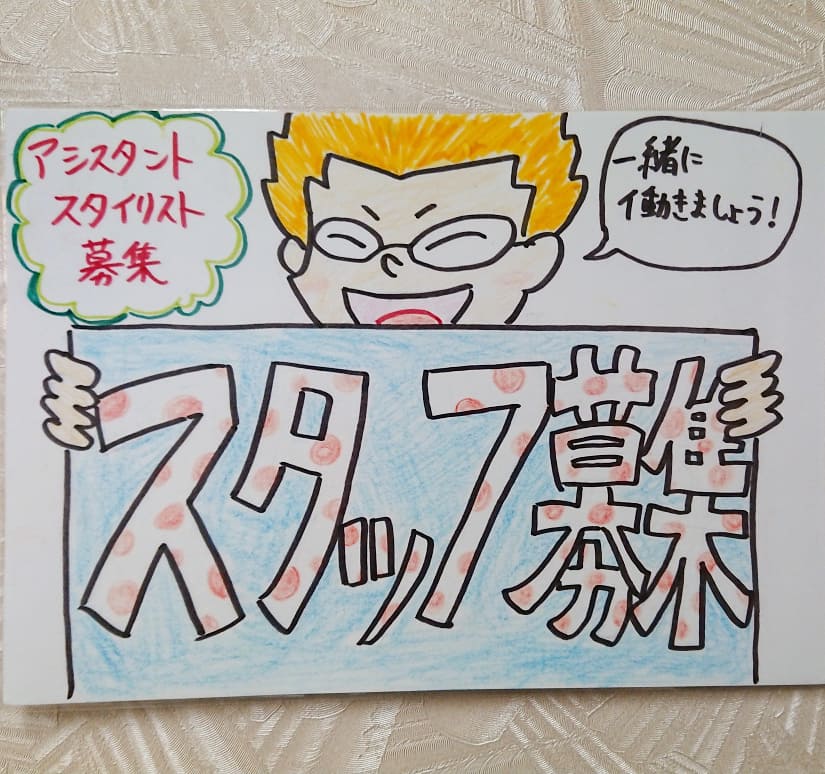 アシスタント
スタイリスト
募集
一緒に
働きましょう!
スタッフ募集